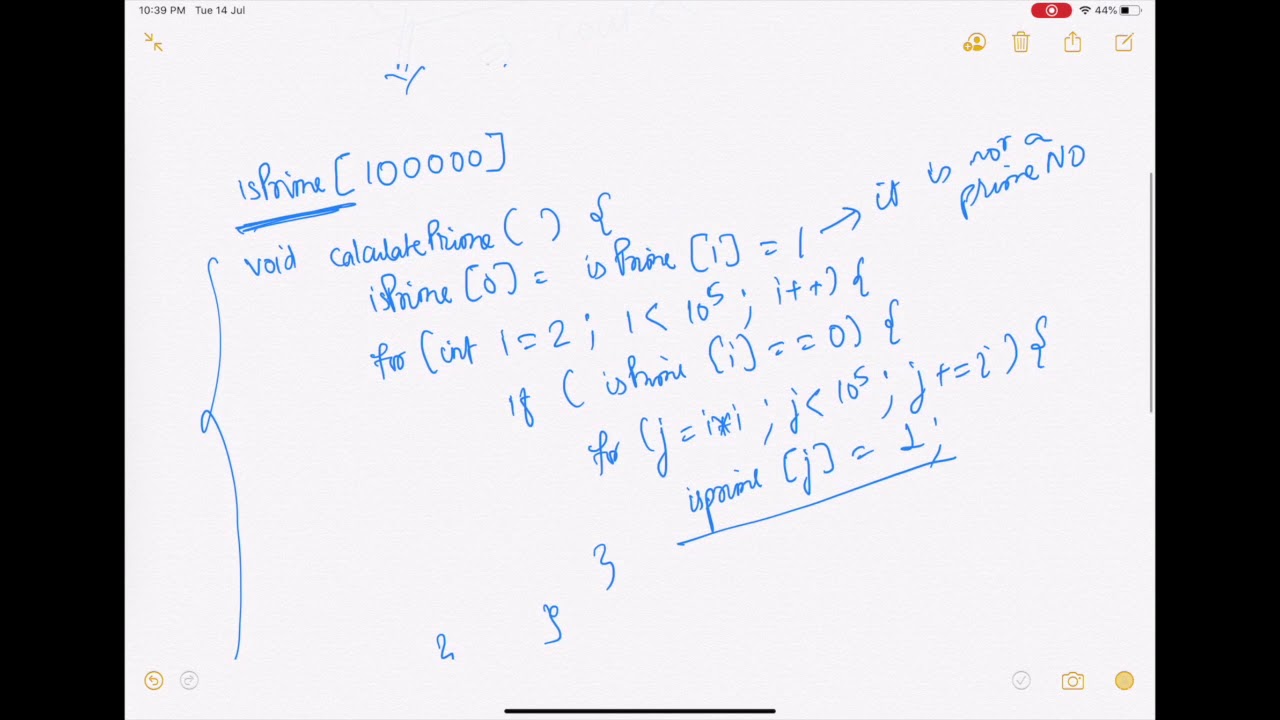 10:39 PM Tue 14 Jul
44%
isPrime[100000]
void calculatePrime( ) {
isPrime[0] = isPrime[1] = 1 → it is not a prime NO
for (int i=2; i<10^5; i++) {
if ( isPrime [i] == 0) {
for (j=i*i; j<10^5; j+=i) {
isprime [j] = 1;
}
}